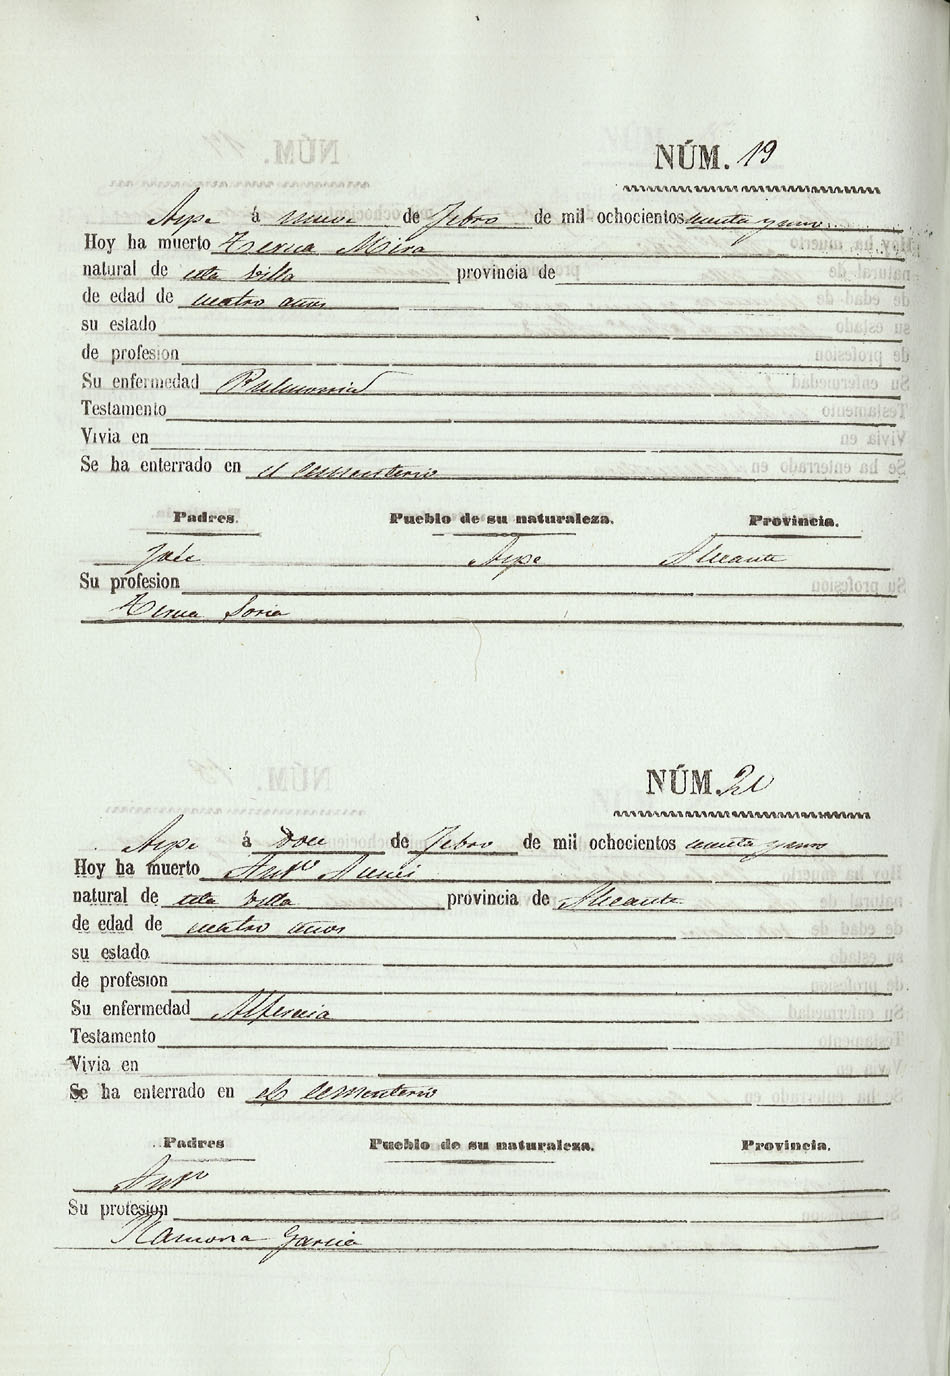 NÚM. 19
Aspe á nueve de Febro de mil ochocientos cuenta y uno
Hoy ha muerto Teresa Mira
natural de esta Villa provincia de
de edad de cuatro años
su estado
de profesion
Su enfermedad Pulmonia
Testamento
Vivia en
Se ha enterrado en el cementerio
Padres. Pueblo de su naturaleza. Provincia.
José Aspe Alicante
Su profesion
Teresa Soria
NÚM.
Aspe á Doce de Febro de mil ochocientos cuenta y uno
Hoy ha muerto Anto
natural de esta Villa provincia de Alicante
de edad de cuatro años
su estado
de profesion
Su enfermedad Alferecia
Testamento
Vivia en
Se ha enterrado en el cementerio
Padres Pueblo de su naturaleza. Provincia.
Anto
Su profesion
Ramona Garcia